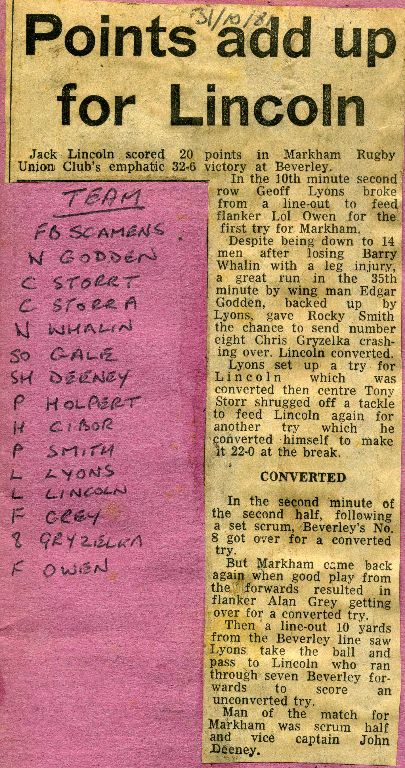 31/10/81
Points add up
for Lincoln
Jack Lincoln scored 20 points in Markham Rugby
Union Club's emphatic 32-6 victory at Beverley.
In the 10th minute second
row Geoff Lyons broke
from a line-out to feed
flanker Lol Owen for the
first try for Markham.
Despite being down to 14
men after losing Barry
Whalin with a leg injury,
a great run in the 35th
minute by wing man Edgar
Godden, backed up by
Lyons, gave Rocky Smith
the chance to send number
eight Chris Gryzelka crash-
ing over. Lincoln converted.
Lyons set up a try for
Lincoln which was
converted then centre Tony
Storr shrugged off a tackle
to feed Lincoln again for
another try which he
converted himself to make
it 22-0 at the break.
CONVERTED
In the second minute of
the second half, following
a set scrum, Beverley's No.
8 got over for a converted
try.
But Markham came back
again when good play from
the forwards resulted in
flanker Alan Grey getting
over for a converted try.
Then a line-out 10 yards
from the Beverley line saw
Lyons take the ball and
pass to Lincoln who ran
through seven Beverley for-
wards to score an
unconverted try.
Man of the match for
Markham was scrum half
and vice captain John
Deeney.
TEAM
FB SCAMENS
N GODDEN
C STORR T
C STORR A
N WHALIN
SO GALE
SH DEENEY
P HOLPERT
H CIBOR
P SMITH
L LYONS
L LINCOLN
F GREY
8 GRYZELKA
F OWEN